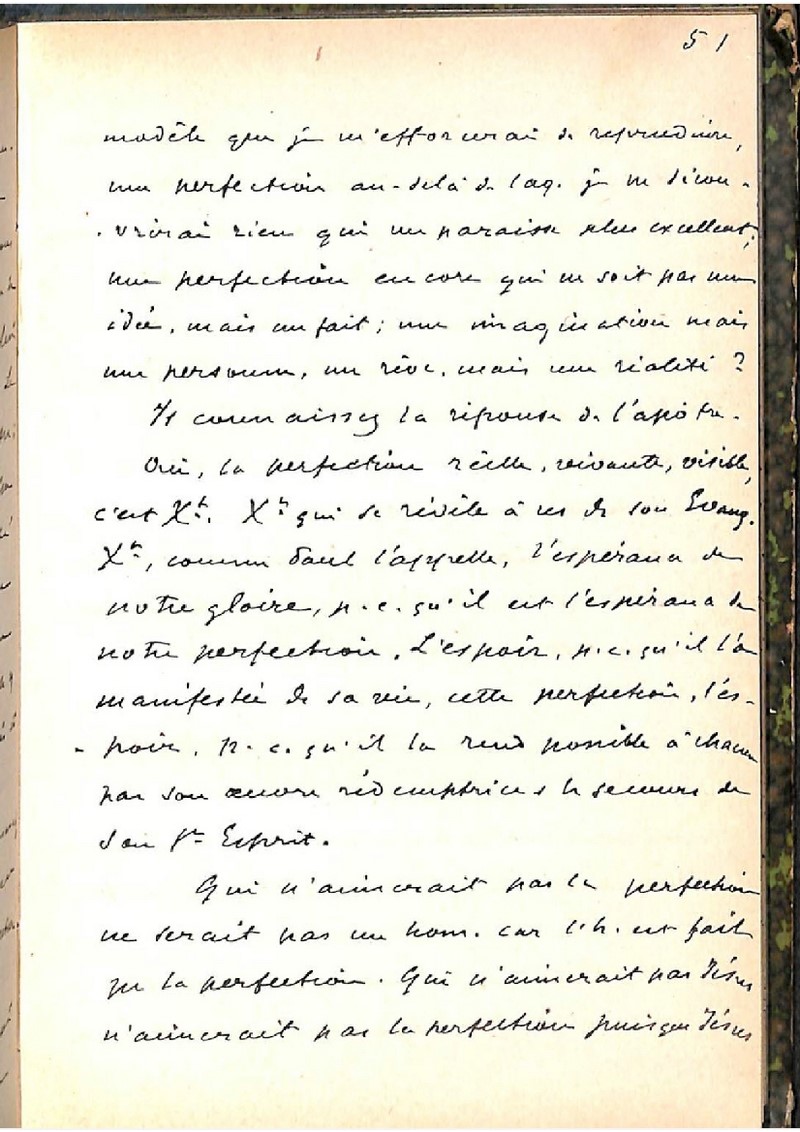 51
modèle que je m'efforcerai de reproduire,
une perfection au-delà de laq. je ne décou-
-vrirai rien qui me paraisse plus excellent;
une perfection encore qui ne soit pas une
idée, mais un fait; une imagination mais
une personne, un rêve, mais une réalité ?
Vs connaissez la réponse de l'apôtre.
Oui, la perfection réelle, vivante, visible,
c'est Xt. Xt qui se révèle à ns ds son Evang.
Xt, comme Paul l'appelle, l'espérance de
notre gloire, p. c. qu'il est l'espérance de
notre perfection. L'espoir, p. c. qu'il l'a
manifestée ds sa vie, cette perfection, l'es-
- poir, p. c. qu'il la rend possible à chacun
par son œuvre rédemptrice & le secours de
Son St Esprit.
Qui n'aimerait pas la perfection
ne serait pas un hom. car l'h. est fait
pr la perfection. Qui n'aimerait pas Jésus
n'aimerait pas la perfection puisque Jésus